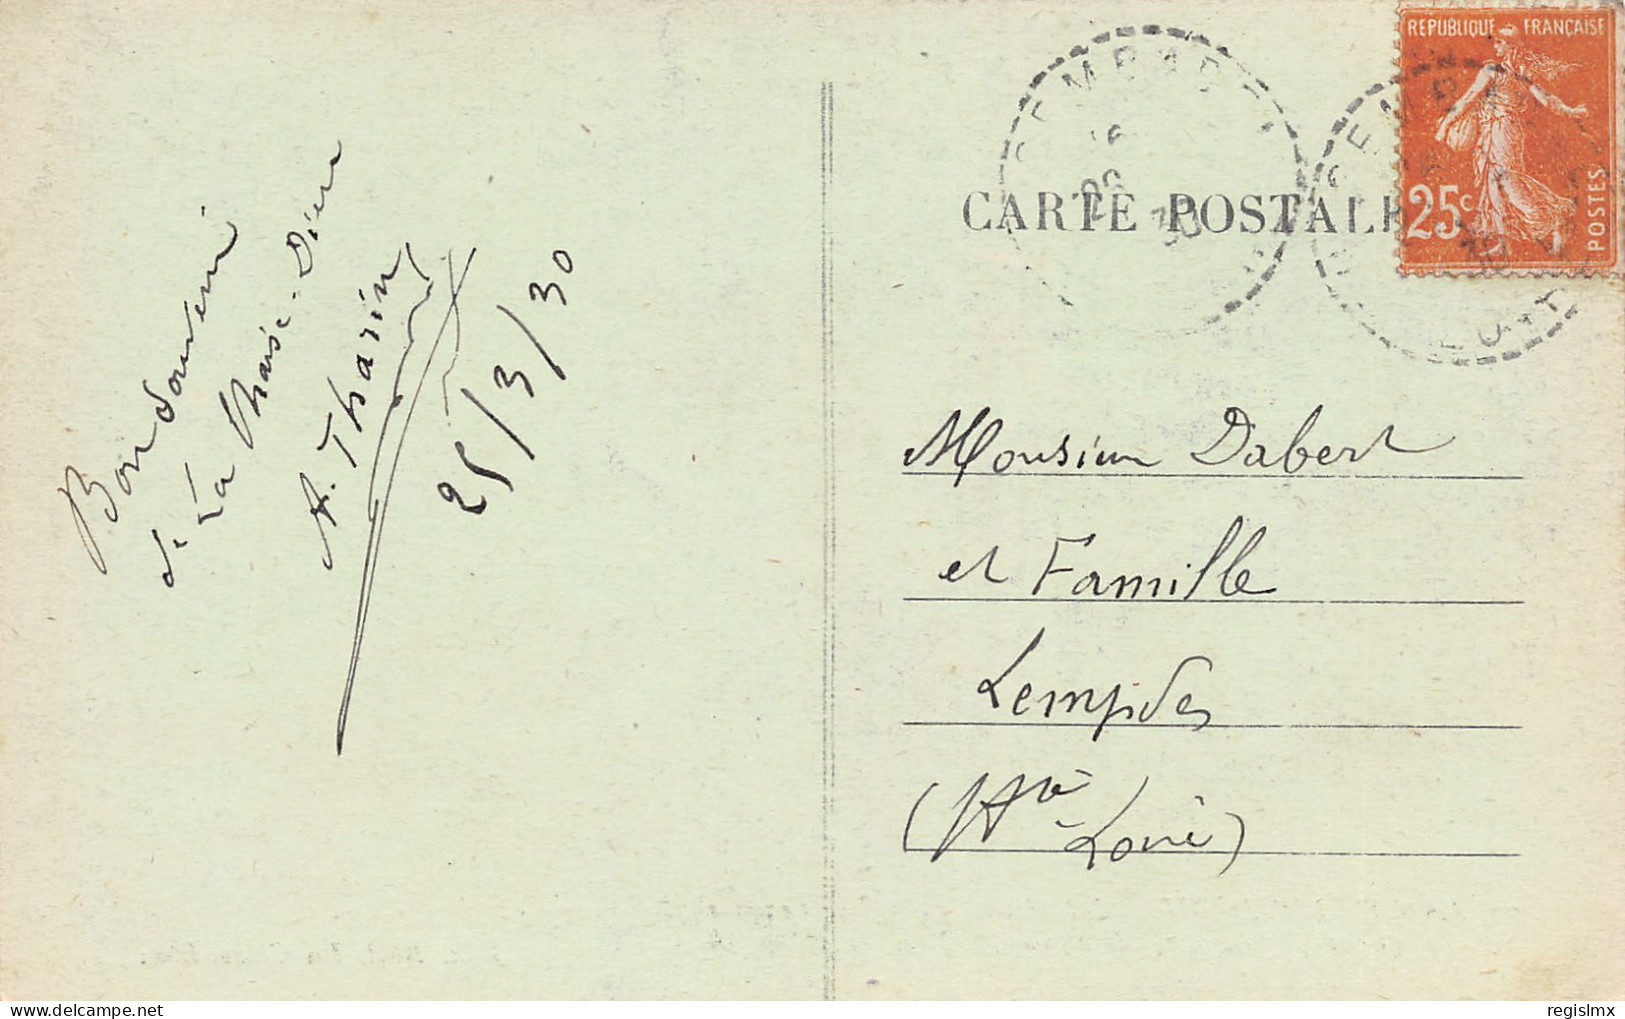 Bon Souvenir
de La Chaise-Dieu
A. Tharin
25/3/30
CARTE POSTALE
REPUBLIQUE FRANÇAISE
25c
POSTES
Monsieur Dabert
et Famille
Lempdes
(Hte Loire)
regislmx